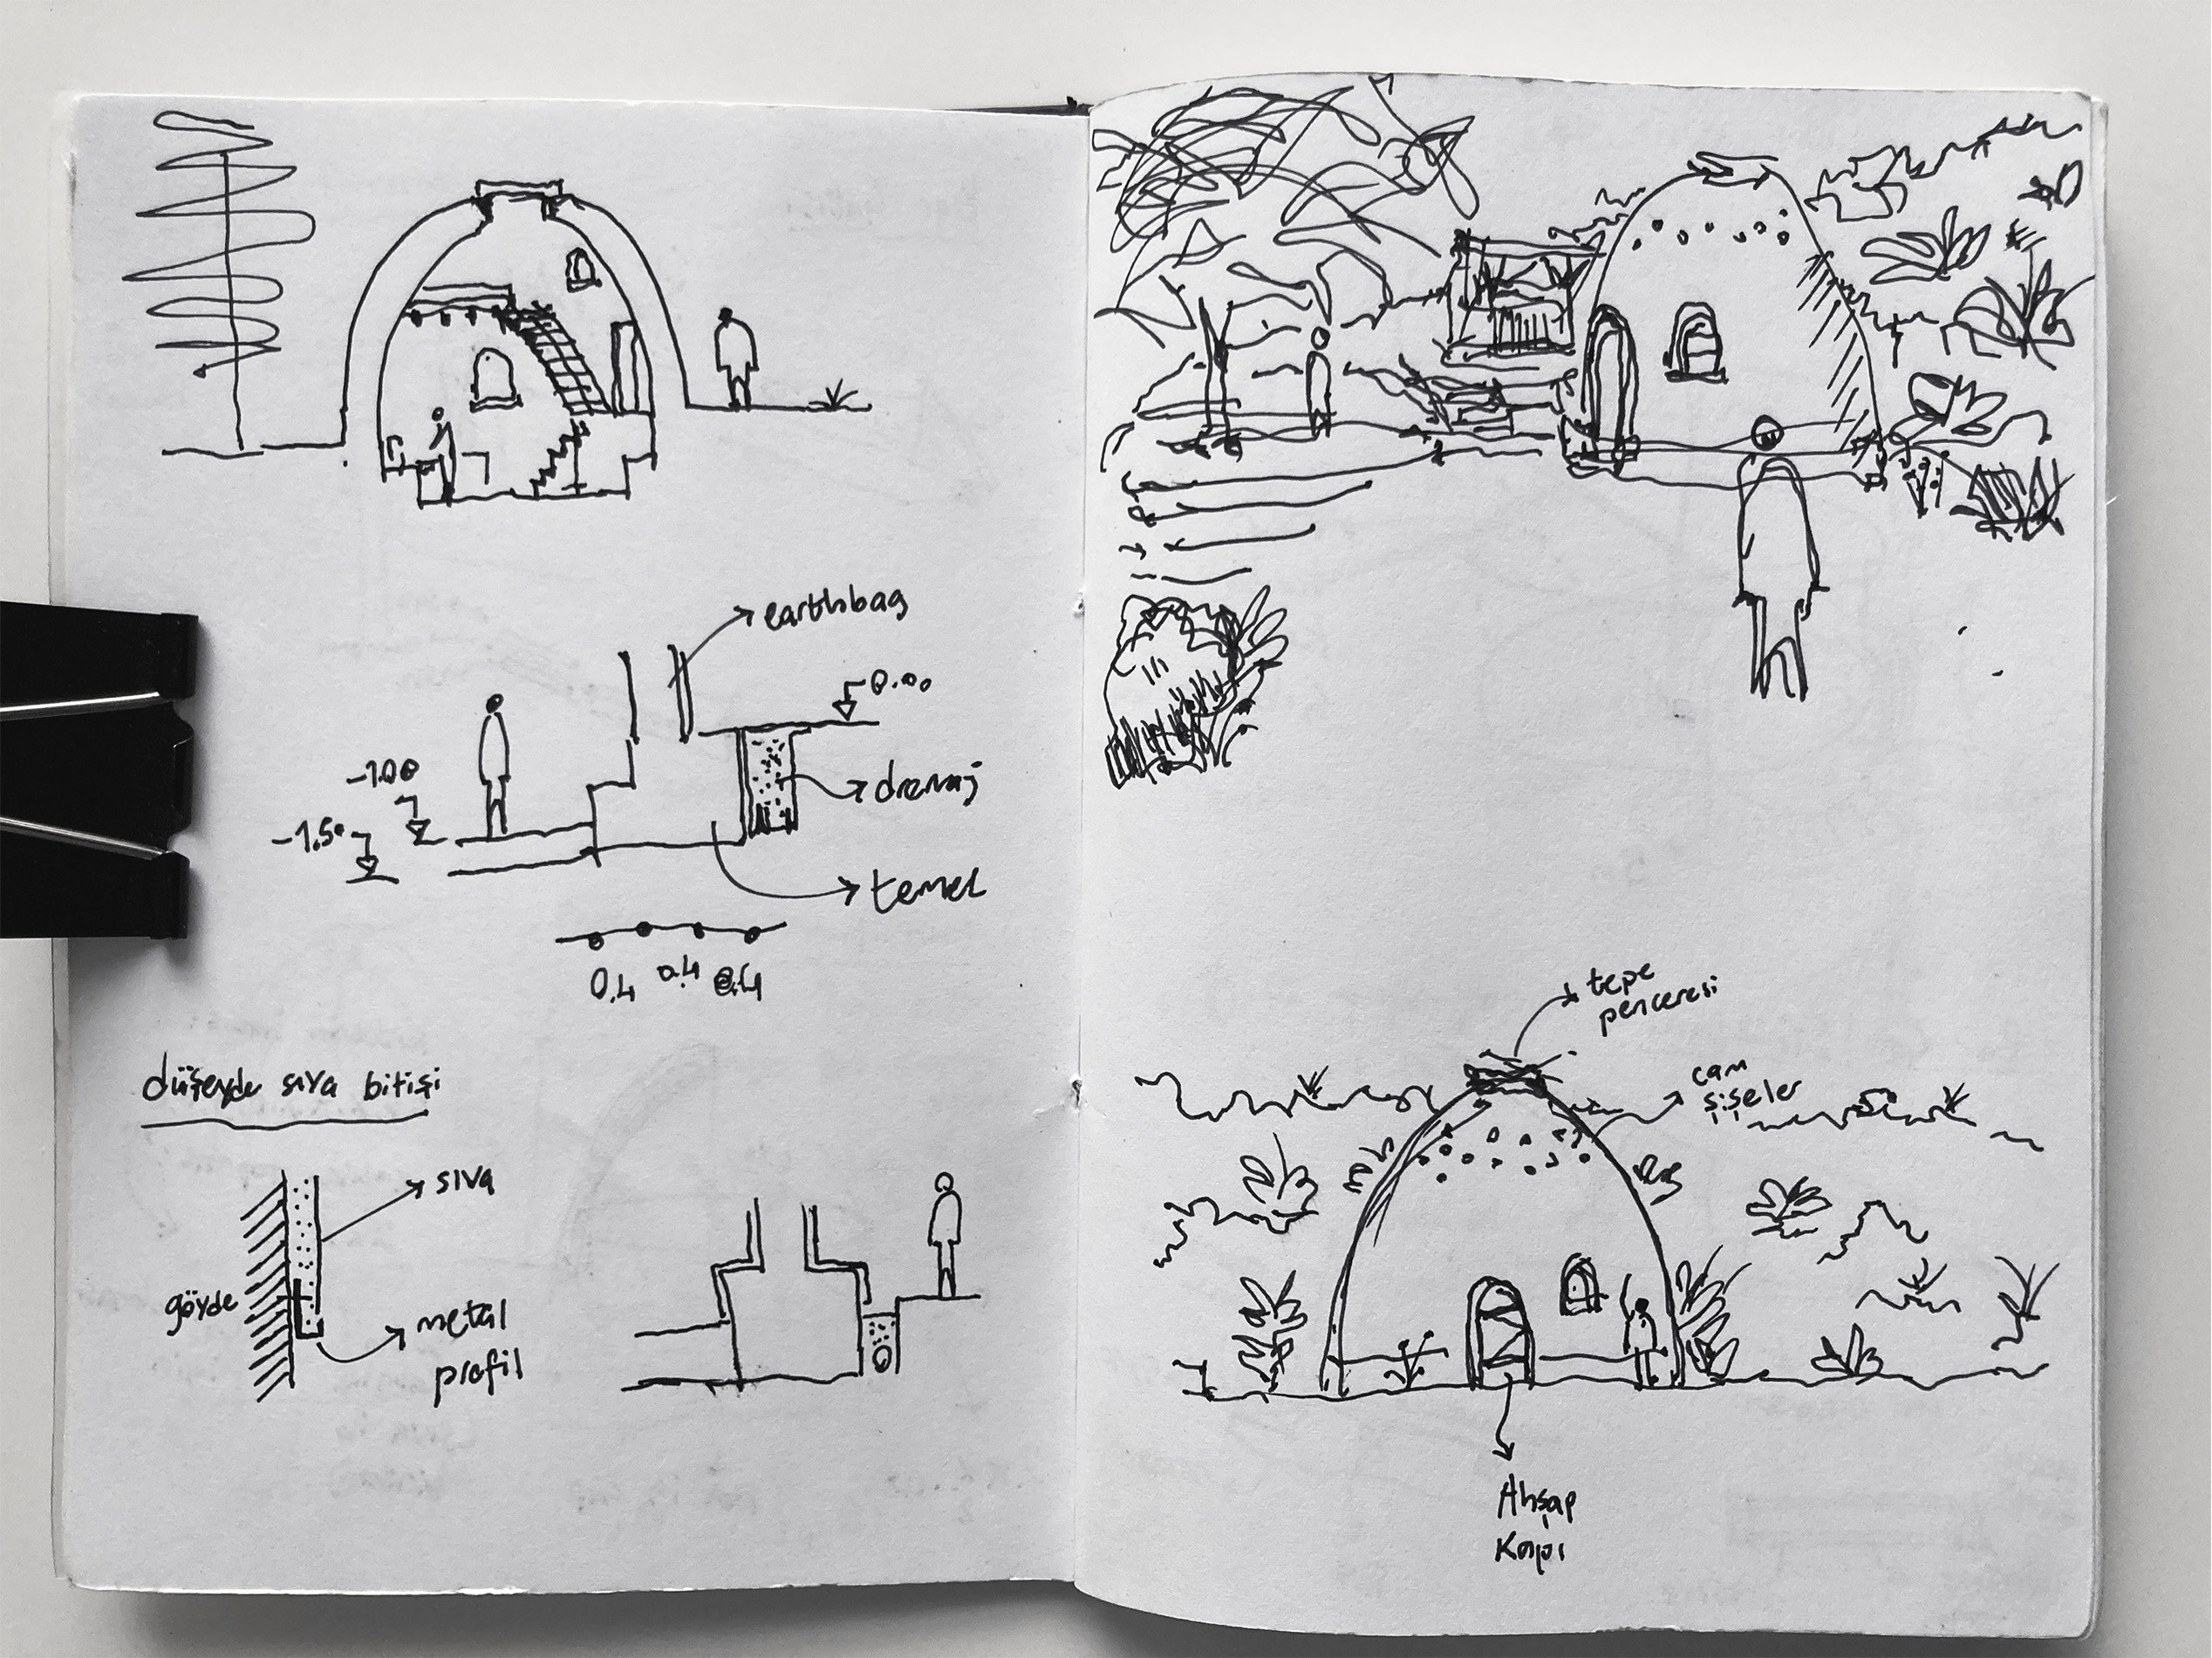 earthbag
0.00
-1.00
drenaj
-1.50
temel
0.4 0.4 0.4
düşeyde sıva bitişi
sıva
gövde
metal
profil
tepe
penceresi
cam
şişeler
Ahşap
Kapı